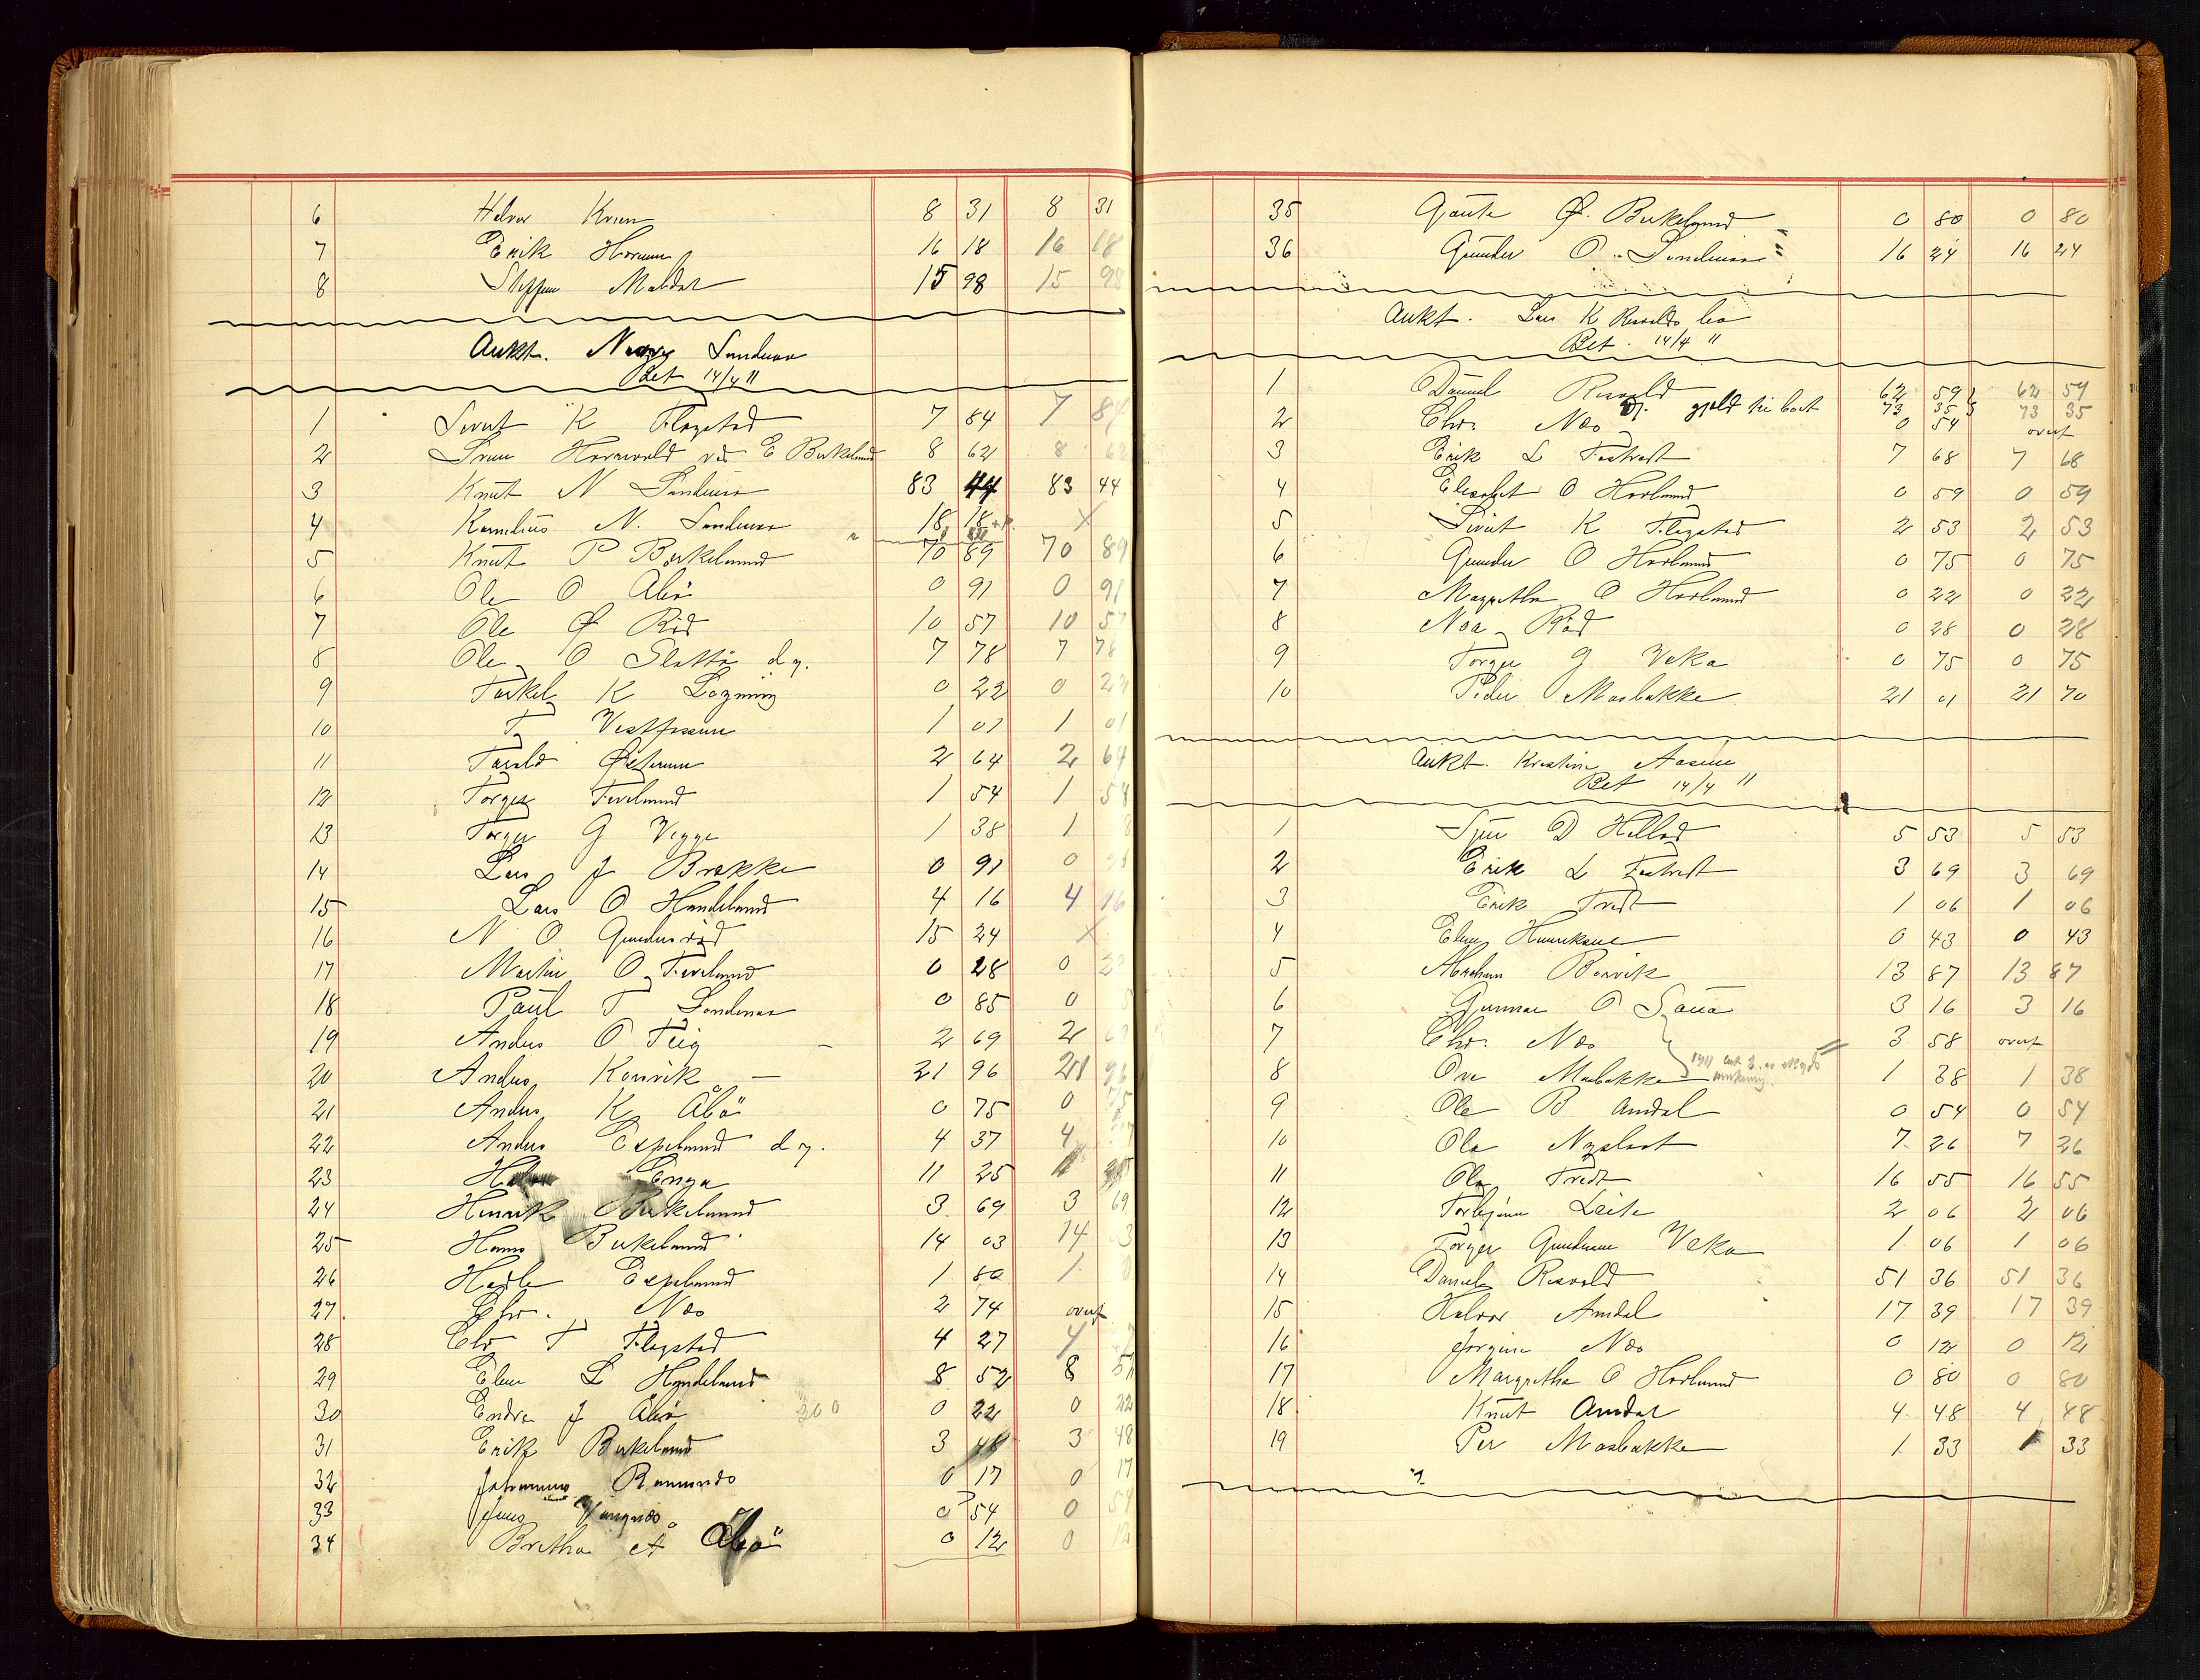 6 Halvor Kvien 8 31 8 31
7 Erik 16 18 16 18
8 Steffen Maldal 15 98 15 98
Aukt. Sandenaa
Bet 14/4 11
1 Sivert K Flogstad 7 84 7 84
2 E Birkeland 8 62 8 62
3 Knut N Sandenaa 83 44 83 44
4 Kornelius N. Sandenaa 18 18 X
5 Knut P Birkeland 70 89 70 89
6 Ole O Abö 0 91 0 91
7 Ole Ø Röd 10 57 10 57
8 Ole O Slettå d.y. 7 78 7 78
9 Torkel K 0 22 0 22
10 T 1 01 1 01
11 Østerum 2 64 2 64
12 Torger Fiveland 1 54 1 54
13 Torger G Vegge 1 38 1 8
14 Lars J Brække 0 91 0 91
15 Lars O Handeland 4 16 4 16
16 N O Gundersröd 15 24 X
17 Martin O Fiveland 0 28 0 28
18 Paul T Sandenaa 0 85 0
19 Anders O Teig 2 69 2 69
20 Anders Kornvik 21 96 21 96
21 Anders K Åbö 0 75 0 75
22 Anders Espeland d.y. 4 37 4 37
23 Enga 11 25 11 25
24 Henrik Birkeland 3 69 3 69
25 Hans Birkeland 14 03 14 3
26 Helle Espeland 1 80 1
27. Chr. Næs 2 74 overf
28 Chr T Flogstad 4 27 4
29 Elen L Handeland 8 52 8 52
30 Endre J Åbö 300 0 22 0 22
31 Erik Birkeland 3 48 3 48
32 Johannes 0 17 0 17
33 Jens 0 54 0 54
34 Bretha A Åbö 0 12 0 12
35 Gaute Ø. Birkeland 0 80 0 80
36 Gunder O Sandenaa 16 24 16 24
Aukt. Lars K Risvolds bo
Bet. 14/4 11
1 Daniel Risvold 62 59 62 59
gjeld til boet 73 35 73 35
2 Chr. Næs 0 54 overf
3 Erik L Tastvedt 7 68 7 68
4 Elisabet O Havland 0 59 0 59
5 Sivert K Flogstad 2 53 2 53
6 Gunder O Havland 0 75 0 75
7 Margretha O Havland 0 22 0 22
8 Noa Röd 0 28 0 28
9 Torger G Veka 0 75 0 75
10 Peder Mosbækka 21 01 21 70
Aukt. Kristine Aasene
Bet 14/4 11
1 D Helland 5 53 5 53
2 Erik L Tastvedt 3 69 3 69
3 Erik Tvedt 1 06 1 06
4 Elen Henriksen 0 43 0 43
5 Abraham Børvik 13 87 13 87
6 Gunnar O Saua 3 16 3 16
7 Chr. Næs 3 58 overf
8 Ove Mosbække 1 38 1 38
9 Ole B. Amdal 0 54 0 54
10 Ole Nyslaat 7 26 7 26
11 Ole Tvedt 16 55 16 55
12 Torbjørn Leite 2 06 2 06
13 Torger Gundersen Veka 1 06 1 06
14 Daniel Risvold 51 36 51 36
15 Halvor Amdal 17 39 17 39
16 Jorgine Næs 0 12 0 12
17 Margretha O Havland 0 80 0 80
18 Knut Amdal 4 48 4 48
19 Per Mosbække 1 33 1 33